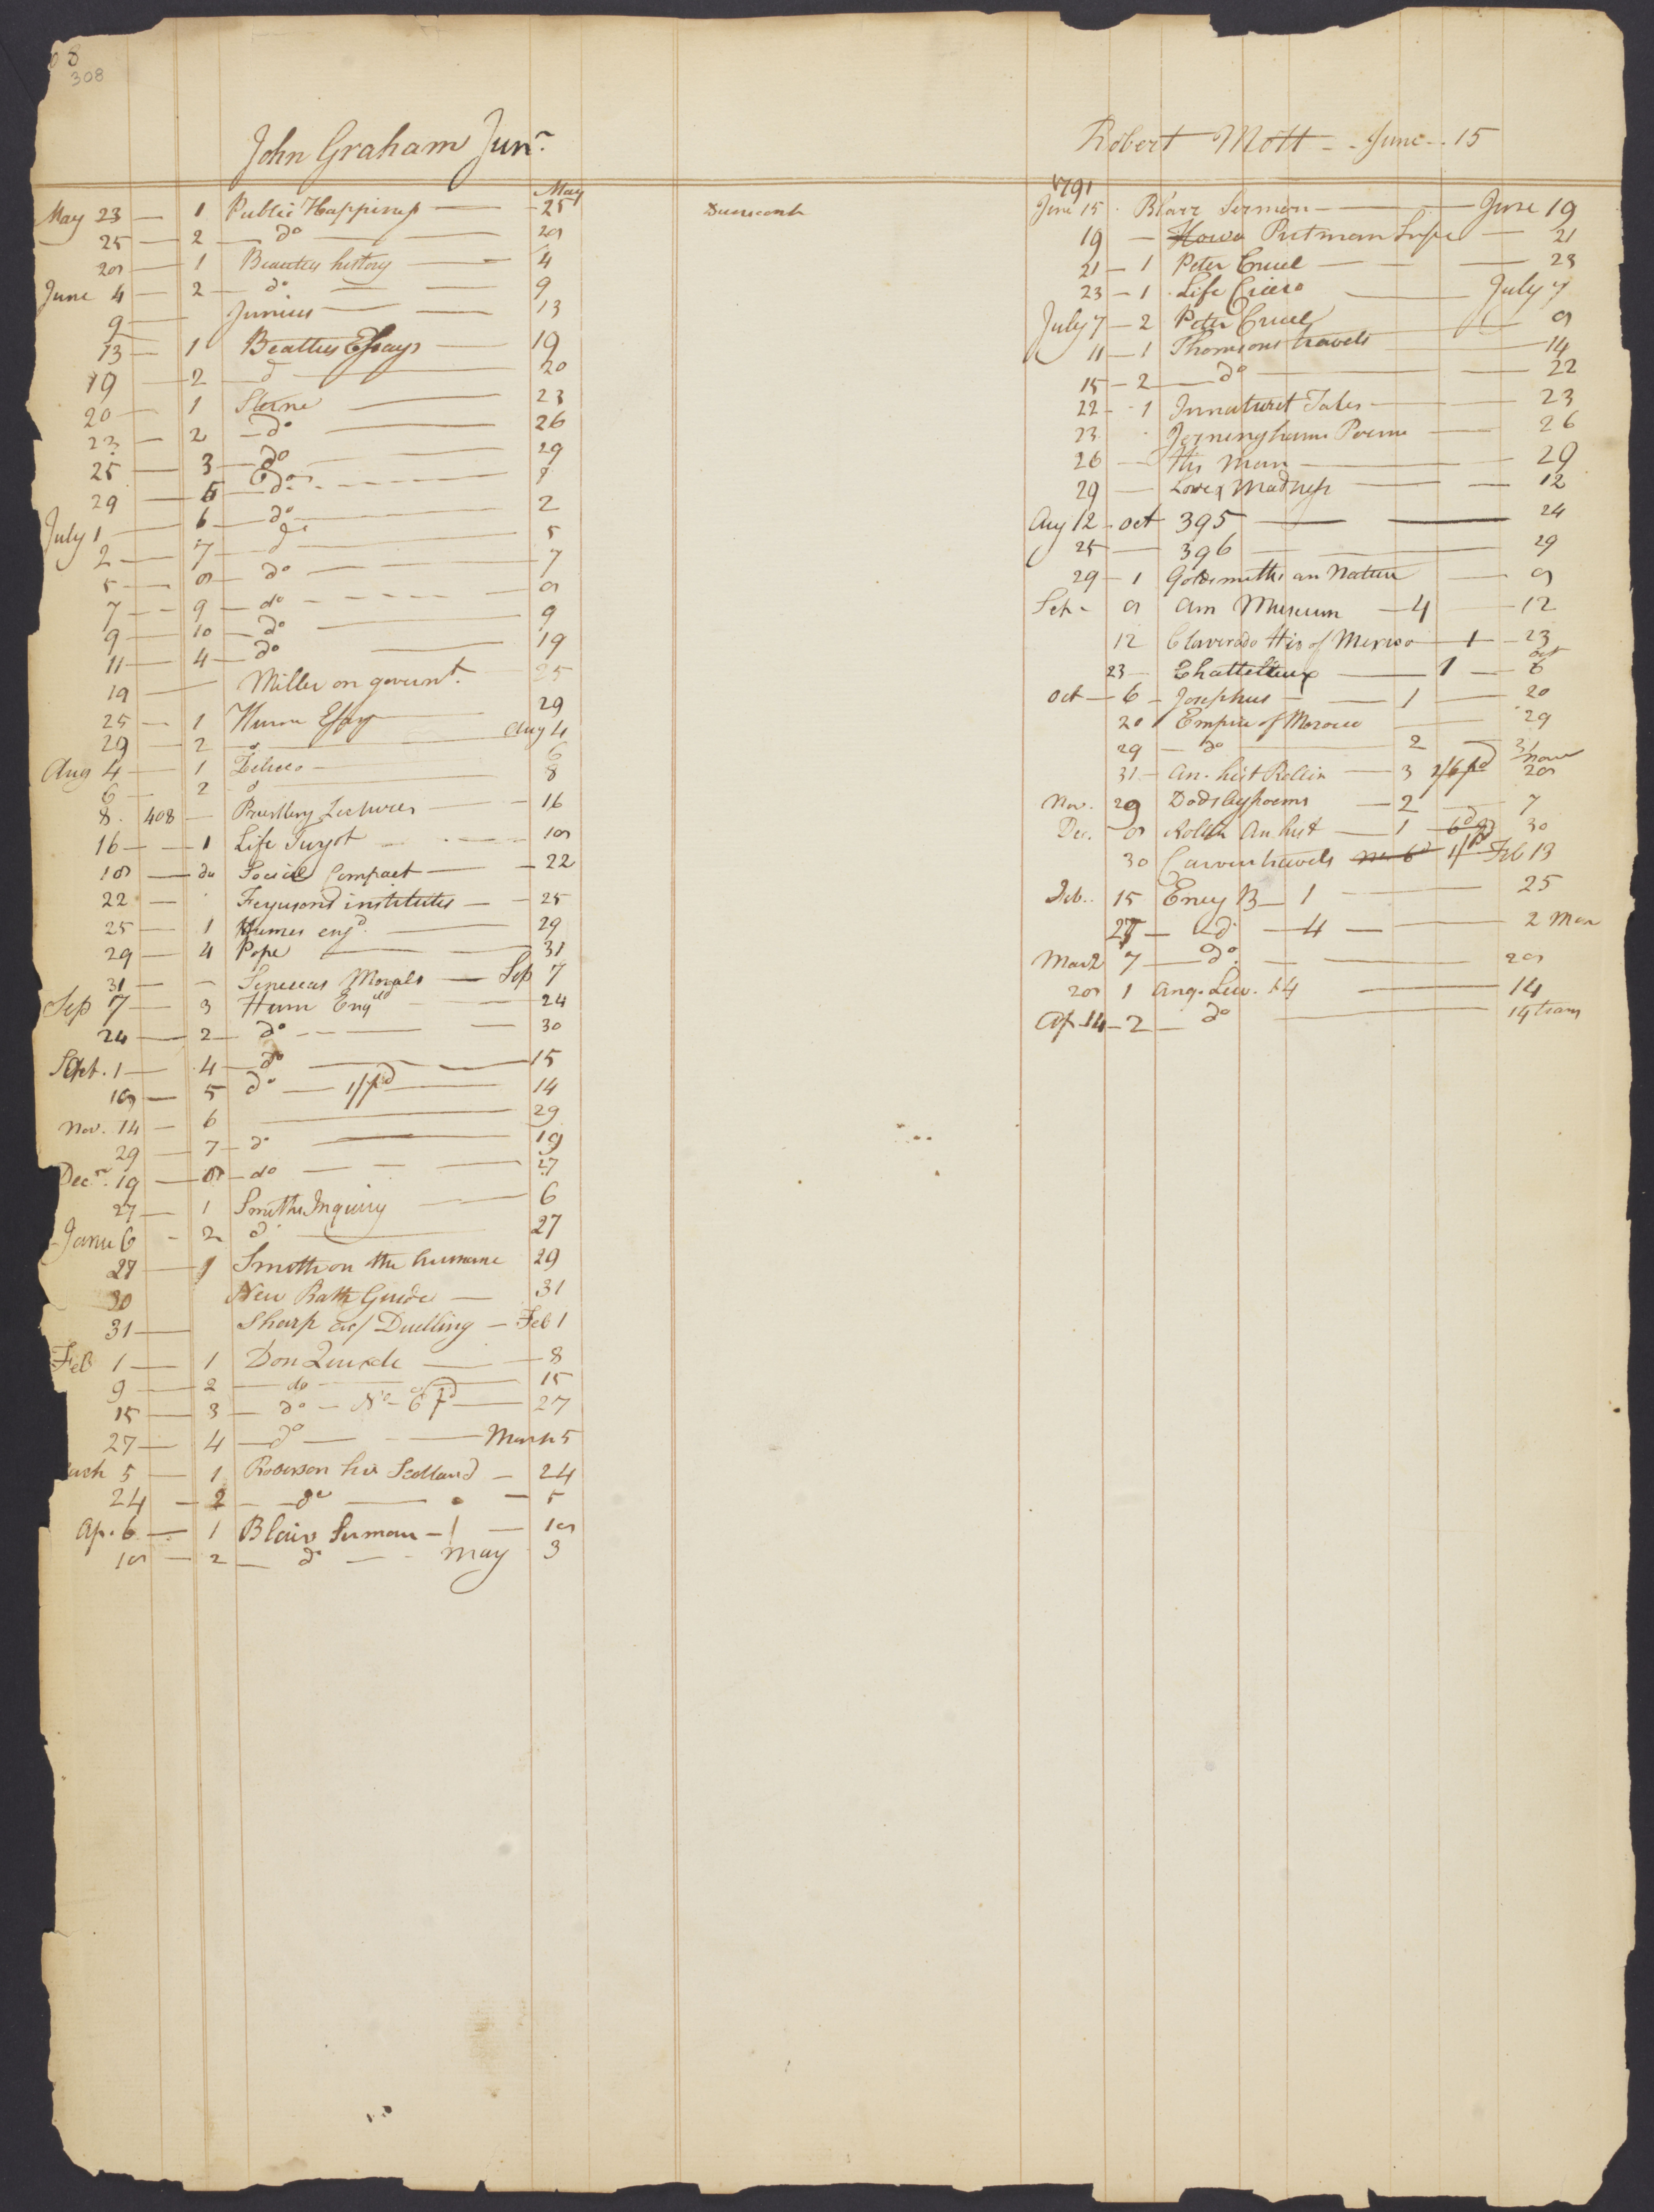 308
John Graham Junr.
May
May 23 — 1 Public Happiness — 25
25 — 2 — do — 28
28 — 1 Beauties history — 4
June 4 — 2 — do — 9
9 — Junius — 13
13 — 1 Beatties Essays — 19
19 — 2 — d — 20
20 — 1 Sterne — 23
23 — 2 — do — 26
25 — 3 — do — 29
29 — 5 — do —
July 1 — 6 — do — 2
2 — 7 — do — 5
5 — 8 — do — 7
7 — 9 — do — 8
9 — 10 — do — 9
11 — 4 — do — 19
19 — Miller on governt. 25
25 — 1 Essay — 29
29 — 2 — d — Aug 4
Aug 4 — 1 — 6
6 — 2 d — 8
8. 408 — Priestley Lectures — 16
16 — 1 Life Turgot — 18
18 — do Social Compact — 22
22 — Fergusons institutes — 25
25 — 1 Humes engd. — 29
29 — 4 Pope — 31
31 — Senecas Morals — Sep 7
Sep 7 — 3 Hum Engld — 24
24 — 2 — do — 30
Oct. 1 — 4 — do — 15
18 — 5 do — 1/pd — 14
Nov. 14 — 6 — 29
29 — 7 — do — 19
Decr. 19 — 8 — do — 27
27 — 1 Smiths Inquiry — 6
Janu 6 — 2 d — 27
27 — 1 Smith on the humane 29
30 New Bath Guide — 31
31 — Sharp on Duelling — Feb 1
Feb 1 — 1 Don Quixote — 8
9 — 2 — do — 15
15 — 3 — do — 6 pd — 27
27 — 4 — do — March 5
arch 5 — 1 Roberson his Scotland — 24
24 — 2 — do — 5
Ap. 6 — 1 Blairs Sermon — 1 — 18
18 — 2 — do — May 3
Robert Mott — June 15
1791
June 15 Blair Sermon — June 19
19 — Howa Putmam — 21
21 — 1 Peter Cruel — 23
23 — 1 Life Cicero — July 7
July 7 — 2 Peter Cruel — 8
11 — 1 Thomsons travels — 14
15 — 2 — do — 22
22 — 1 Tales — 23
23 Jerninghams Poems — 26
26 — His Man — 29
29 — Love & Madness — 12
Aug 12 — oct 395 — 24
25 — 396 — 29
29 — 1 Goldsmiths an Nature — 8
Sep — 8 Am Museum — 4 — 12
12 Claverado His of Mexico — 1 — 23
oct
23 — Chattelleux — 1 — 6
Oct — 6 — Josephus — 1 — 20
20 Empire of Morocco — 29
29 — do — 2 — 31
31 — An. hist Rollin — 3 2/6 pd 28
Nov. 29 Dodsley poems — 2 — 7
Dec. 8 Rollin An hist — 1 — 6d 30
30 Carver travels 1/pd Feb 13
Feb. 15 Ency B — 1 — 25
27 — do — 4 — 2 Mar
Mar 2 7 — do — 28
28 1 14 — 14
Ap. 14 — 2 — do — 14